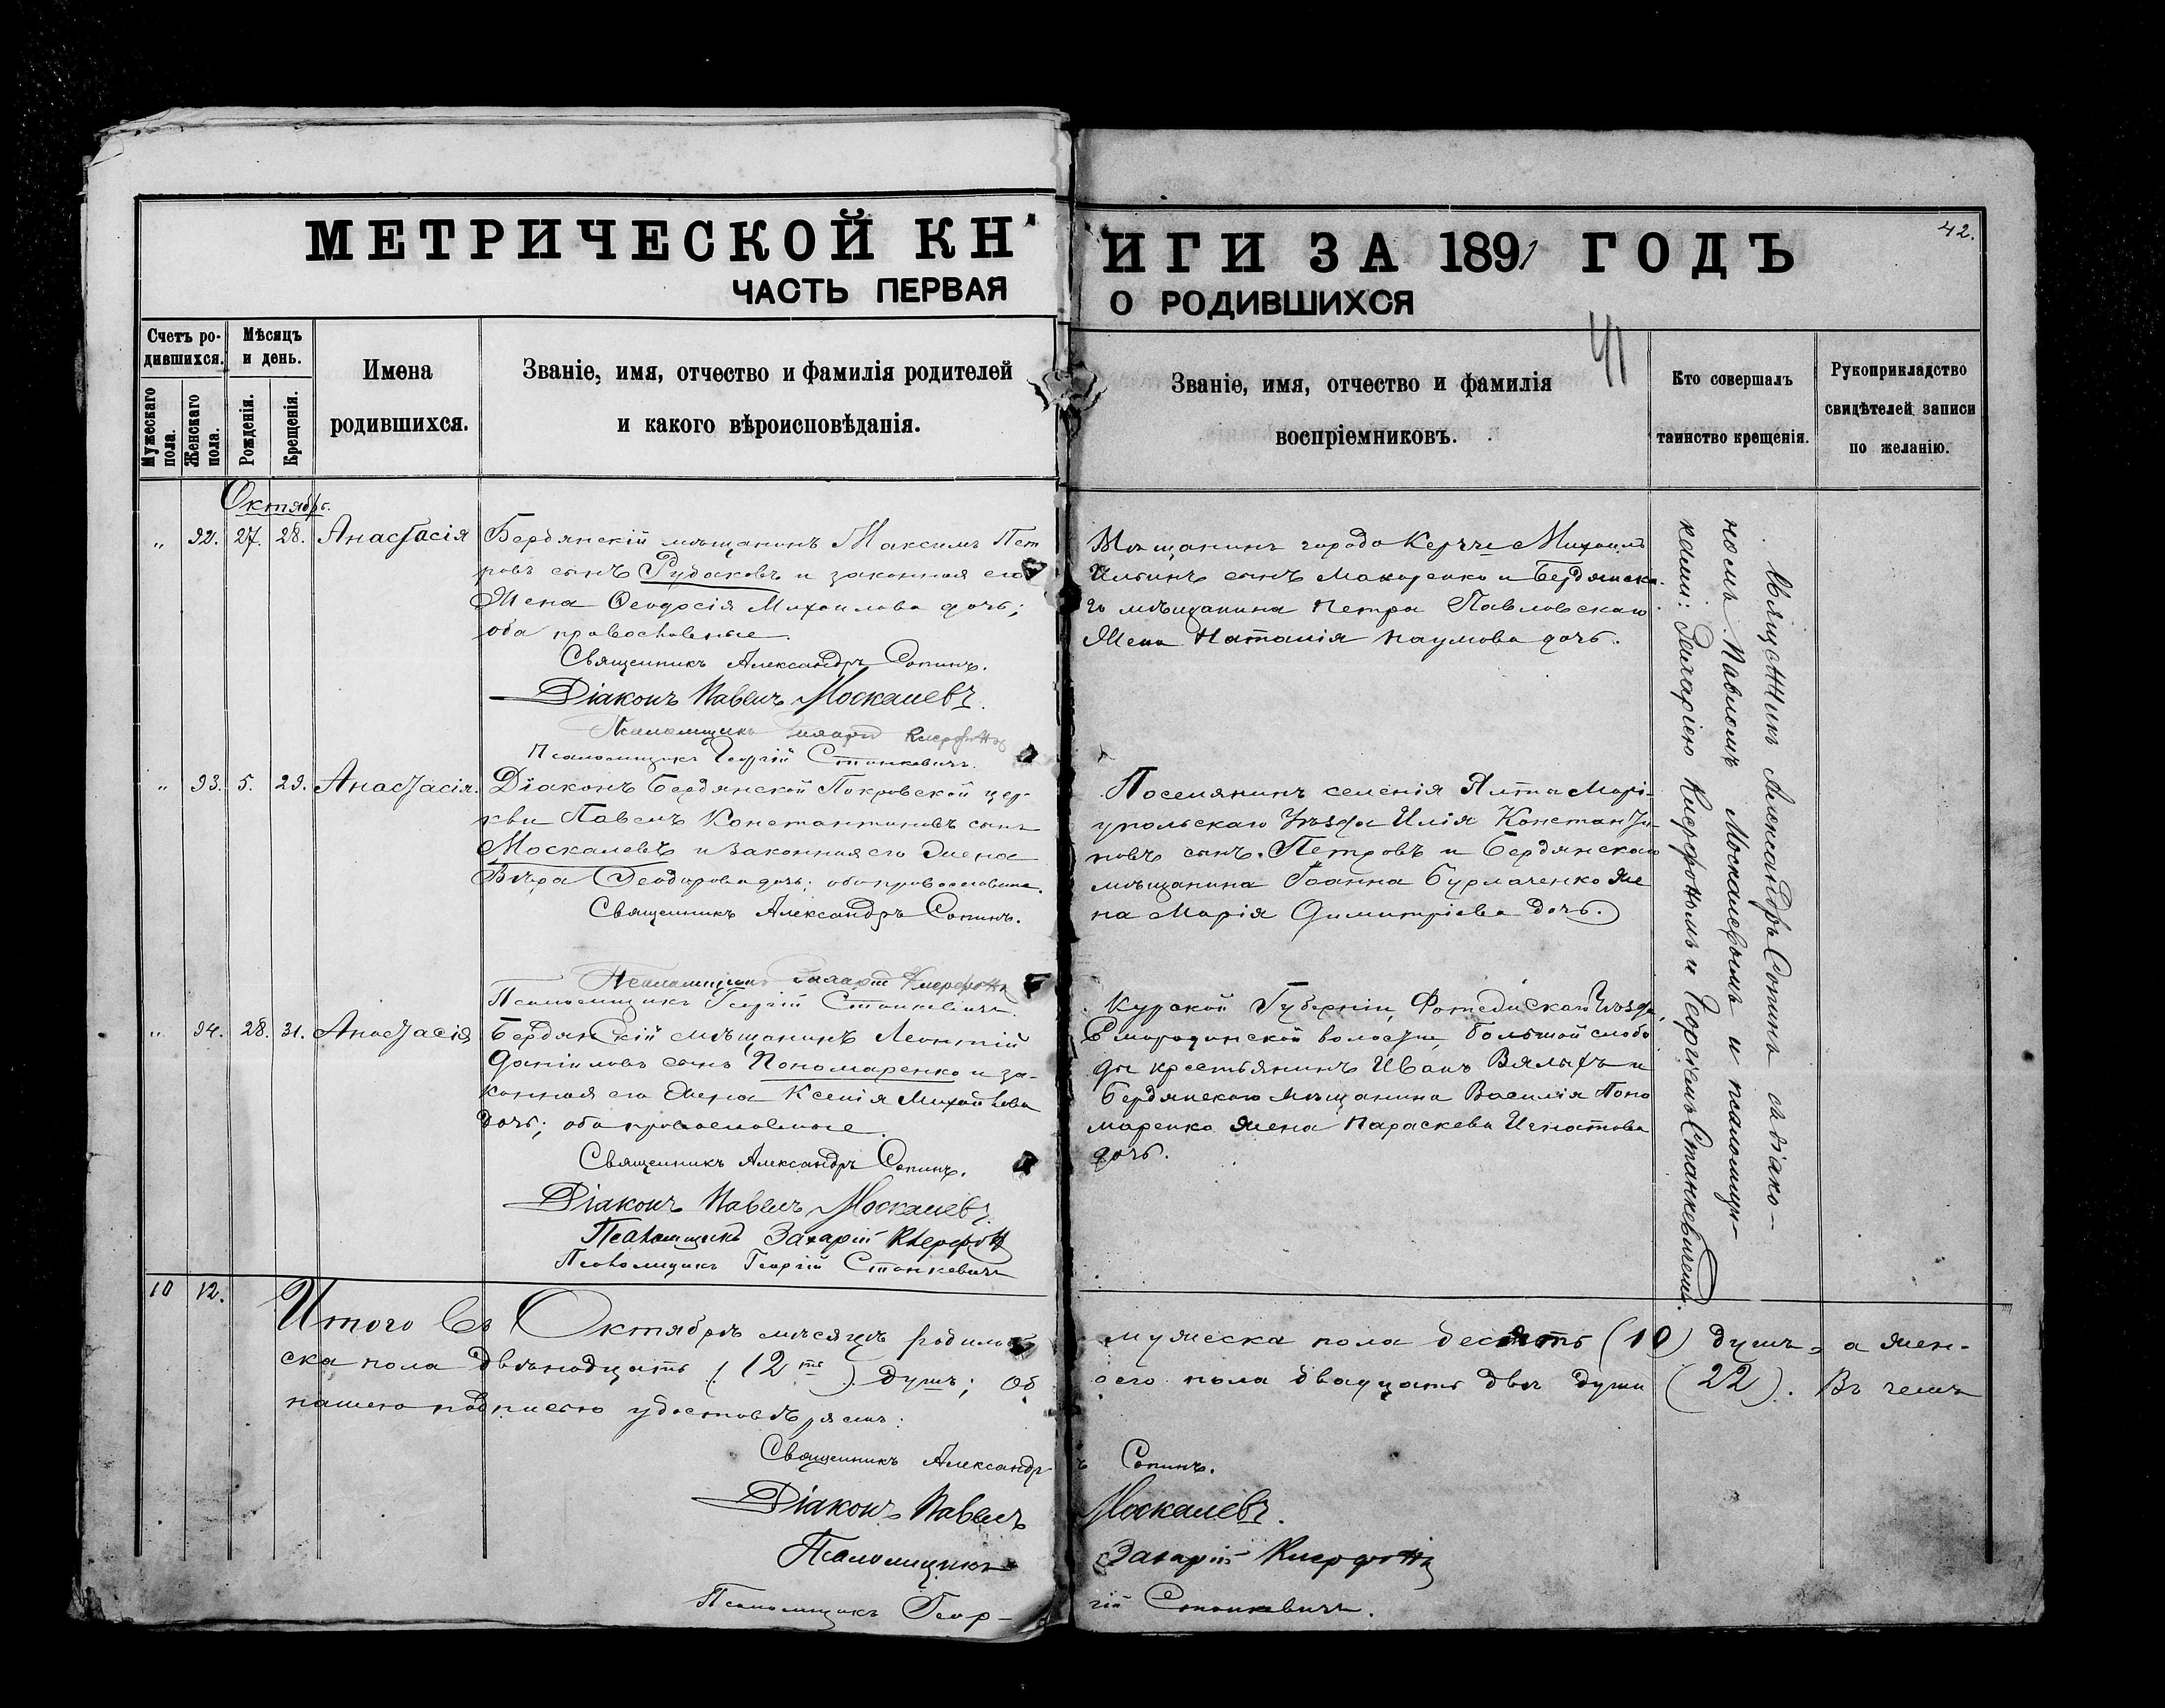 МЕТРИЧЕСКОЙ КН
ЧАСТЬ ПЕРВАЯ
Счетъ ро-
дившихся.
Мужескаго пола.
Женскаго пола.
Мѣсяцъ
и день.
Рожденія.
Крещенія.
Имена
родившихся.
Званіе, имя, отчество и фамилія родителей
и какого вѣроисповѣданія.
Октябрь.
„ 92. 27. 28. Анастасія
Бердянскій мѣщанинъ Максимъ Пет
ровъ сынъ Рудаковъ и законная его
жена Ѳеодосія Михаилова дочь;
оба православные.
Священникъ Александръ Сопинъ.
Діаконъ Павелъ Москалевъ.
Псаломщикъ
Псаломщикъ Георгій Станкевичъ.
„ 93. 5. 29. Анастасія.
Діаконъ Бердянской Покровской цер-
кви Павелъ Константиновъ сынъ
Москалевъ и законная его жена
Вѣра Ѳеодорова дочь; оба православные.
Священникъ Александръ Сопинъ.
Псаломщикъ
Псаломщикъ Георгій Станкевичъ.
„ 94. 28. 31. Анастасія
Бердянскій мѣщанинъ Леонтій
Даніиловъ сынъ Пономаренко и за-
конная его жена Ксенія Михайлова
дочь; оба православные.
Священникъ Александръ Сопинъ.
Діаконъ Павелъ Москалевъ.
Псаломщикъ Захарій
Псаломщикъ Георгій Станкевичъ
10 12.
Итого въ Октябрѣ мѣсяцѣ родилось
ска пола двѣнадцать (12ть) душъ; об
нашею подписью удостовѣряемъ:
Священникъ Александр
Діаконъ Павелъ
Псаломщикъ
Псаломщикъ Геор-
ИГИ ЗА 1891 ГОДЪ
О РОДИВШИХСЯ
42.
41
Званіе, имя, отчество и фамилія
воспріемниковъ.
Кто совершалъ
таинство крещенія.
Рукоприкладство
свидѣтелей записи
по желанію.
Мѣщанинъ города Керчи Михаилъ
Ильинъ сынъ Макаренко и Бердянска-
го мѣщанина Петра Павловскаго
жена Наталія Наумова дочь.
Поселянинъ селенія Ялта Марі-
упольскаго Уѣзда Илія Константи-
новъ сынъ Петровъ и Бердянскаго
мѣщанина Іоанна Бурлаченко же
на Марія Димитріева дочь.
Курской Губерніи, Уѣзда,
волости, Большой слобо
ды крестьянинъ Иванъ Вялыхъ и
Бердянскаго мѣщанина Василія Поно
маренко жена Параскева Игнатова
дочь.
Священникъ Александръ Сопинъ съ діако-
номъ Павломъ Москалевымъ и псаломщи-
ками: Захаріею и Георгіемъ Станкевичемъ.
мужеска пола десять (10) душъ, а жен-
оего пола двадцать двѣ души (22). Въ чемъ
ъ Сопинъ.
Москалевъ.
Захарій
гій Станкевичъ.